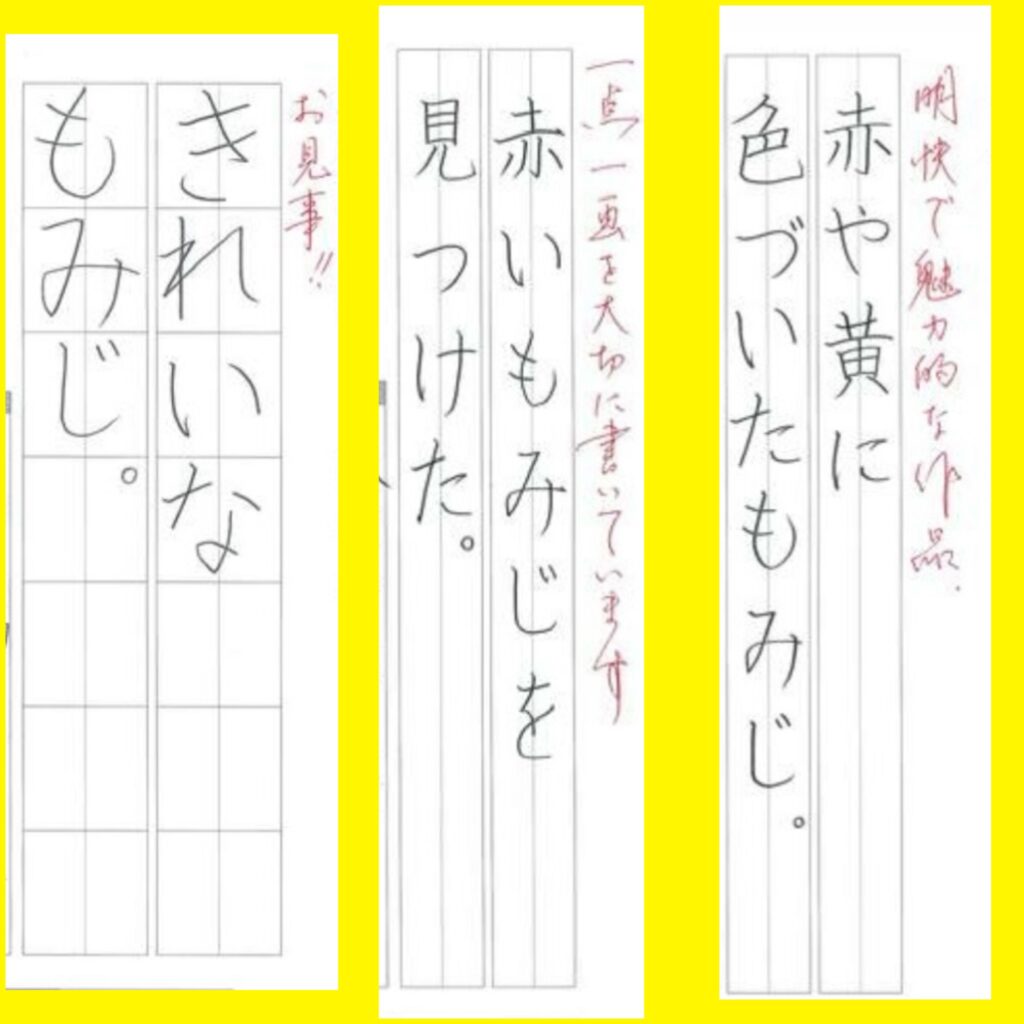 お見事!!
きれいな
もみじ。
一点一画を大切に書いています
赤いもみじを
見つけた。
明快で魅力的な作品.
赤や黄に
色づいたもみじ。